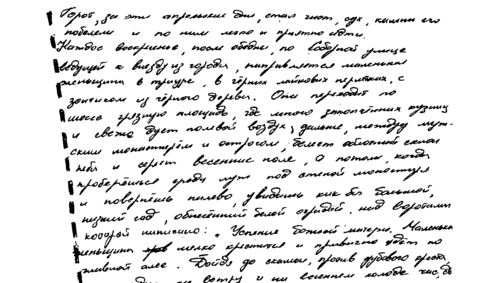 Город, за эти апрельские дни, стал чист, сух, камни его
побелели и по ним легко и приятно идти.
Каждое воскресенье, после обедни, по Соборной улице
ведущей к выезду из города, направляется маленькая
женщина в трауре, в чёрных лайковых перчатках, с
зонтиком из чёрного дерева. Она переходит по
шоссе грязную площадь, где много закопчённых кузниц
и свежо дует полевой воздух; дальше, между муж-
ским монастырём и острогом, белеет облачный склон
неба и сереет весеннее поле, а потом, когда
проберёшься среди луж под стеной монастыря
и повернёшь налево, увидишь как бы большой,
низкий сад, обнесённый белой оградой, над воротами
которой написано: "Успение Божией матери. Маленькая
женщина мелко крестится и привычно идёт по
главной аллее. Дойдя до скамьи, против дубового креста,
на ветру и на весеннем холоде час, два